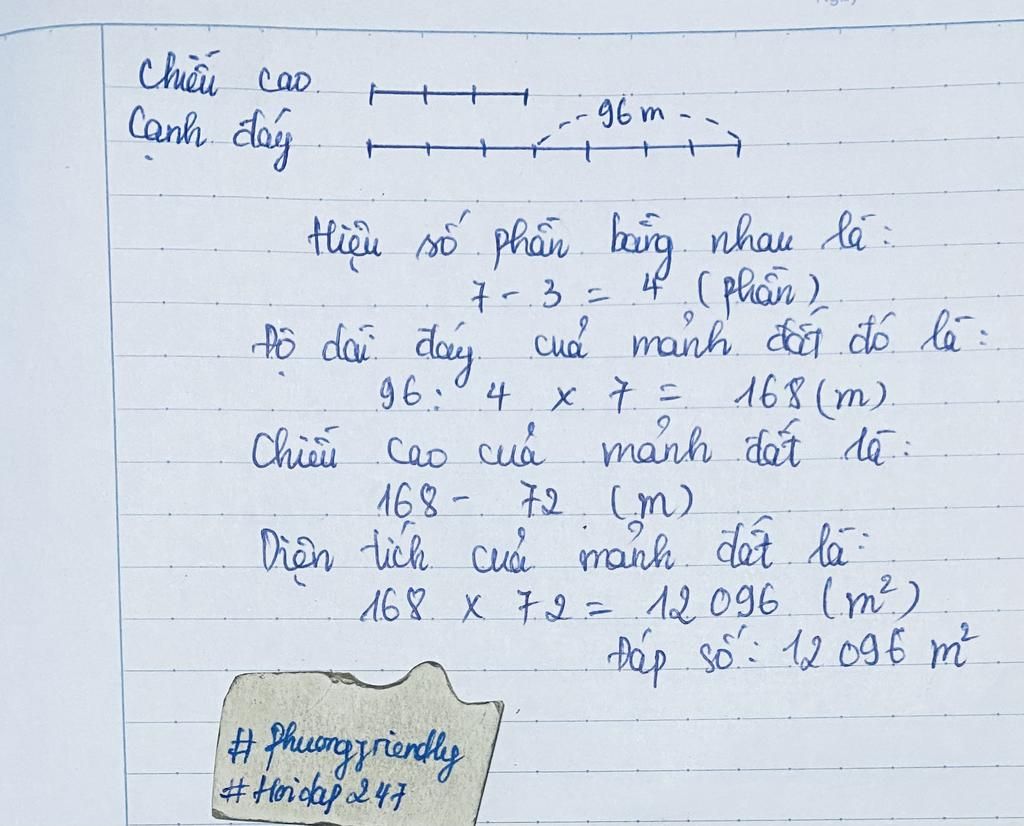 Chiều cao
96 m
Cạnh đáy
Hiệu số phần bằng nhau là:
7 - 3 = 4 (phần)
Độ dài đáy của mảnh đất đó là:
96 : 4 x 7 = 168 (m)
Chiều cao của mảnh đất là:
168 - 72 (m)
Diện tích của mảnh đất là:
168 x 72 = 12 096 (m²)
Đáp số: 12 096 m²
# Phuongfriendly
# Hoidap 247